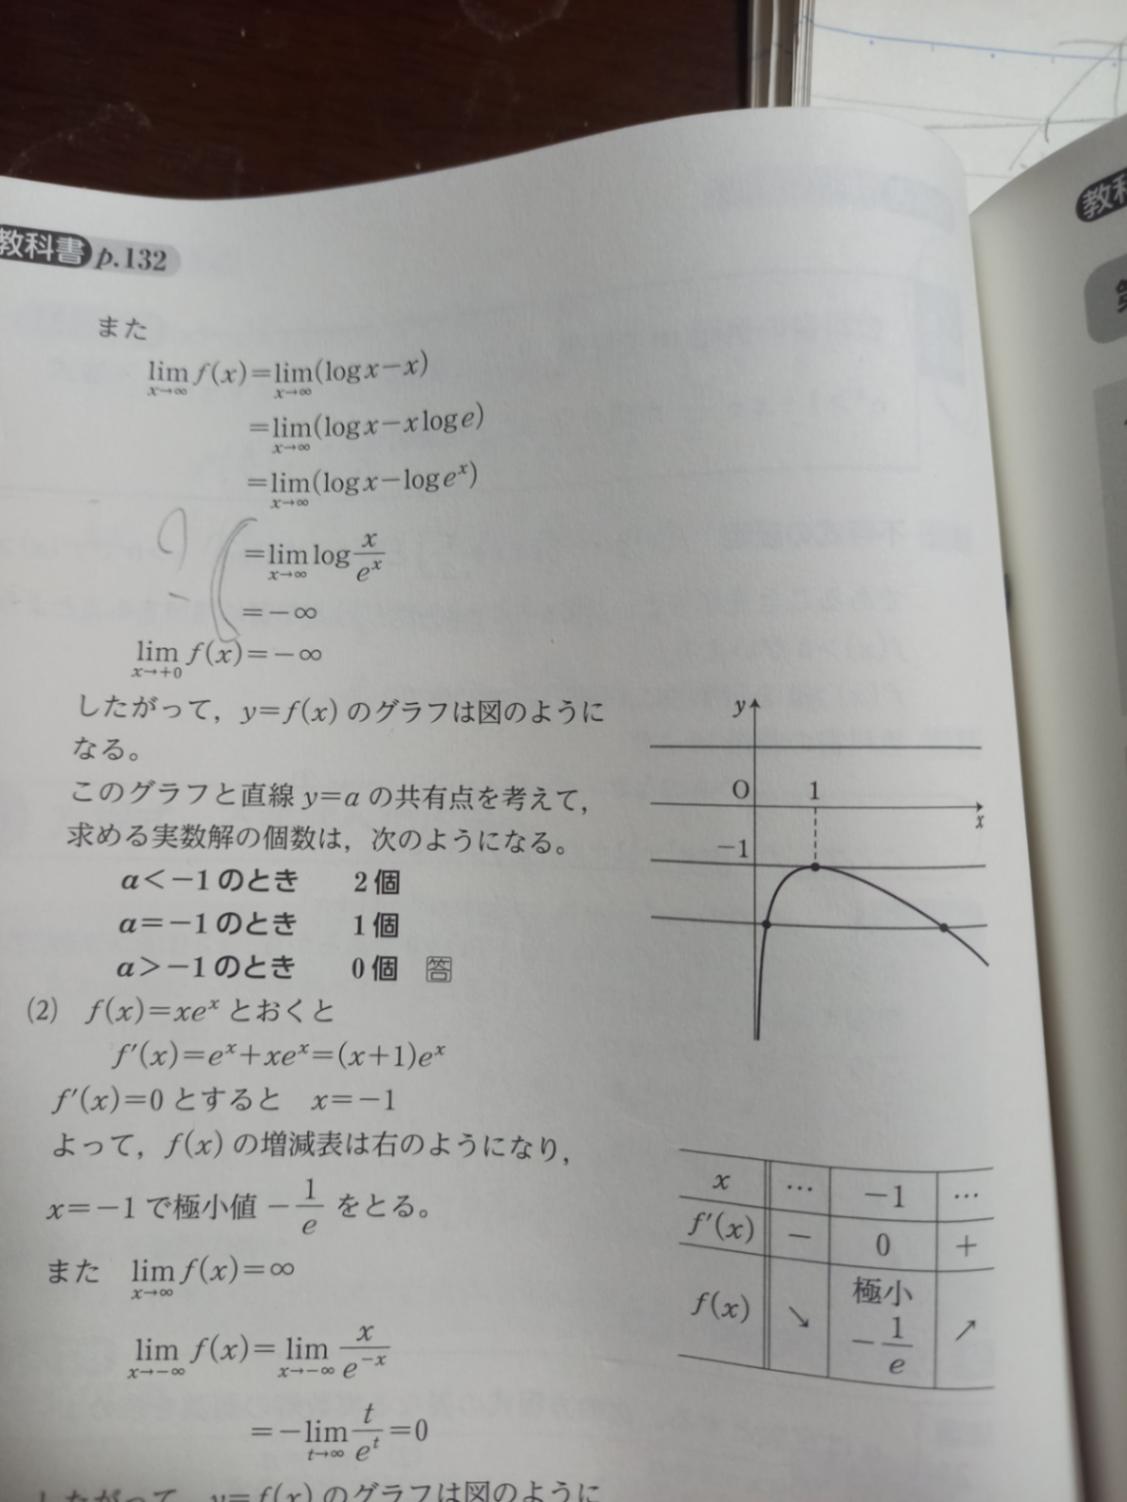 教科書 p.132
また
lim_{x→∞} f(x)=lim_{x→∞}(log x−x)
=lim_{x→∞}(log x−x log e)
=lim_{x→∞}(log x−log e^x)
=lim_{x→∞} log x/e^x
=−∞
lim_{x→+0} f(x)=−∞
したがって，y=f(x) のグラフは図のように
なる。
このグラフと直線 y=a の共有点を考えて，
求める実数解の個数は，次のようになる。
a<−1 のとき 2 個
a=−1 のとき 1 個
a>−1 のとき 0 個 答
y
O 1
x
−1
(2) f(x)=xe^x とおくと
f′(x)=e^x+xe^x=(x+1)e^x
f′(x)=0 とすると x=−1
よって，f(x) の増減表は右のようになり，
x=−1 で極小値 −1/e をとる。
また lim_{x→∞} f(x)=∞
lim_{x→−∞} f(x)=lim_{x→−∞} x/e^{−x}
=−lim_{t→∞} t/e^t=0
したがって，y=f(x) のグラフは図のように
x … −1 …
f′(x) − 0 +
f(x) ↘ 極小 −1/e ↗
教科